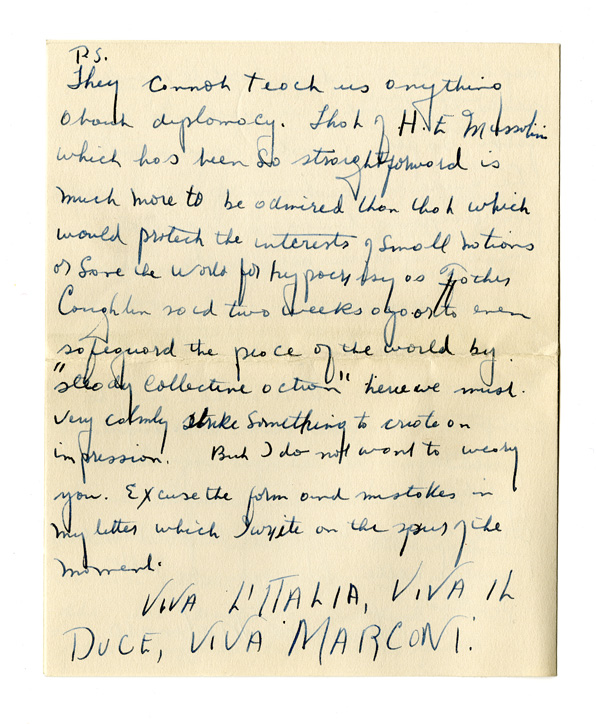 P.S.
They cannot teach us anything
about diplomacy. That of H. E. Mussolini
which has been so straightforward is
much more to be admired than that which
would protect the interests of small nations
or save the world for hypocrisy as Father
Coughlin said two weeks ago or to even
safeguard the peace of the world by
"steady collective action" here we must
very calmly strike something to create an
impression. But I do not want to weary
you. Excuse the form and mistakes in
my letter which I write on the spur of the
moment.
VIVA L'ITALIA, VIVA IL
DUCE, VIVA MARCONI.